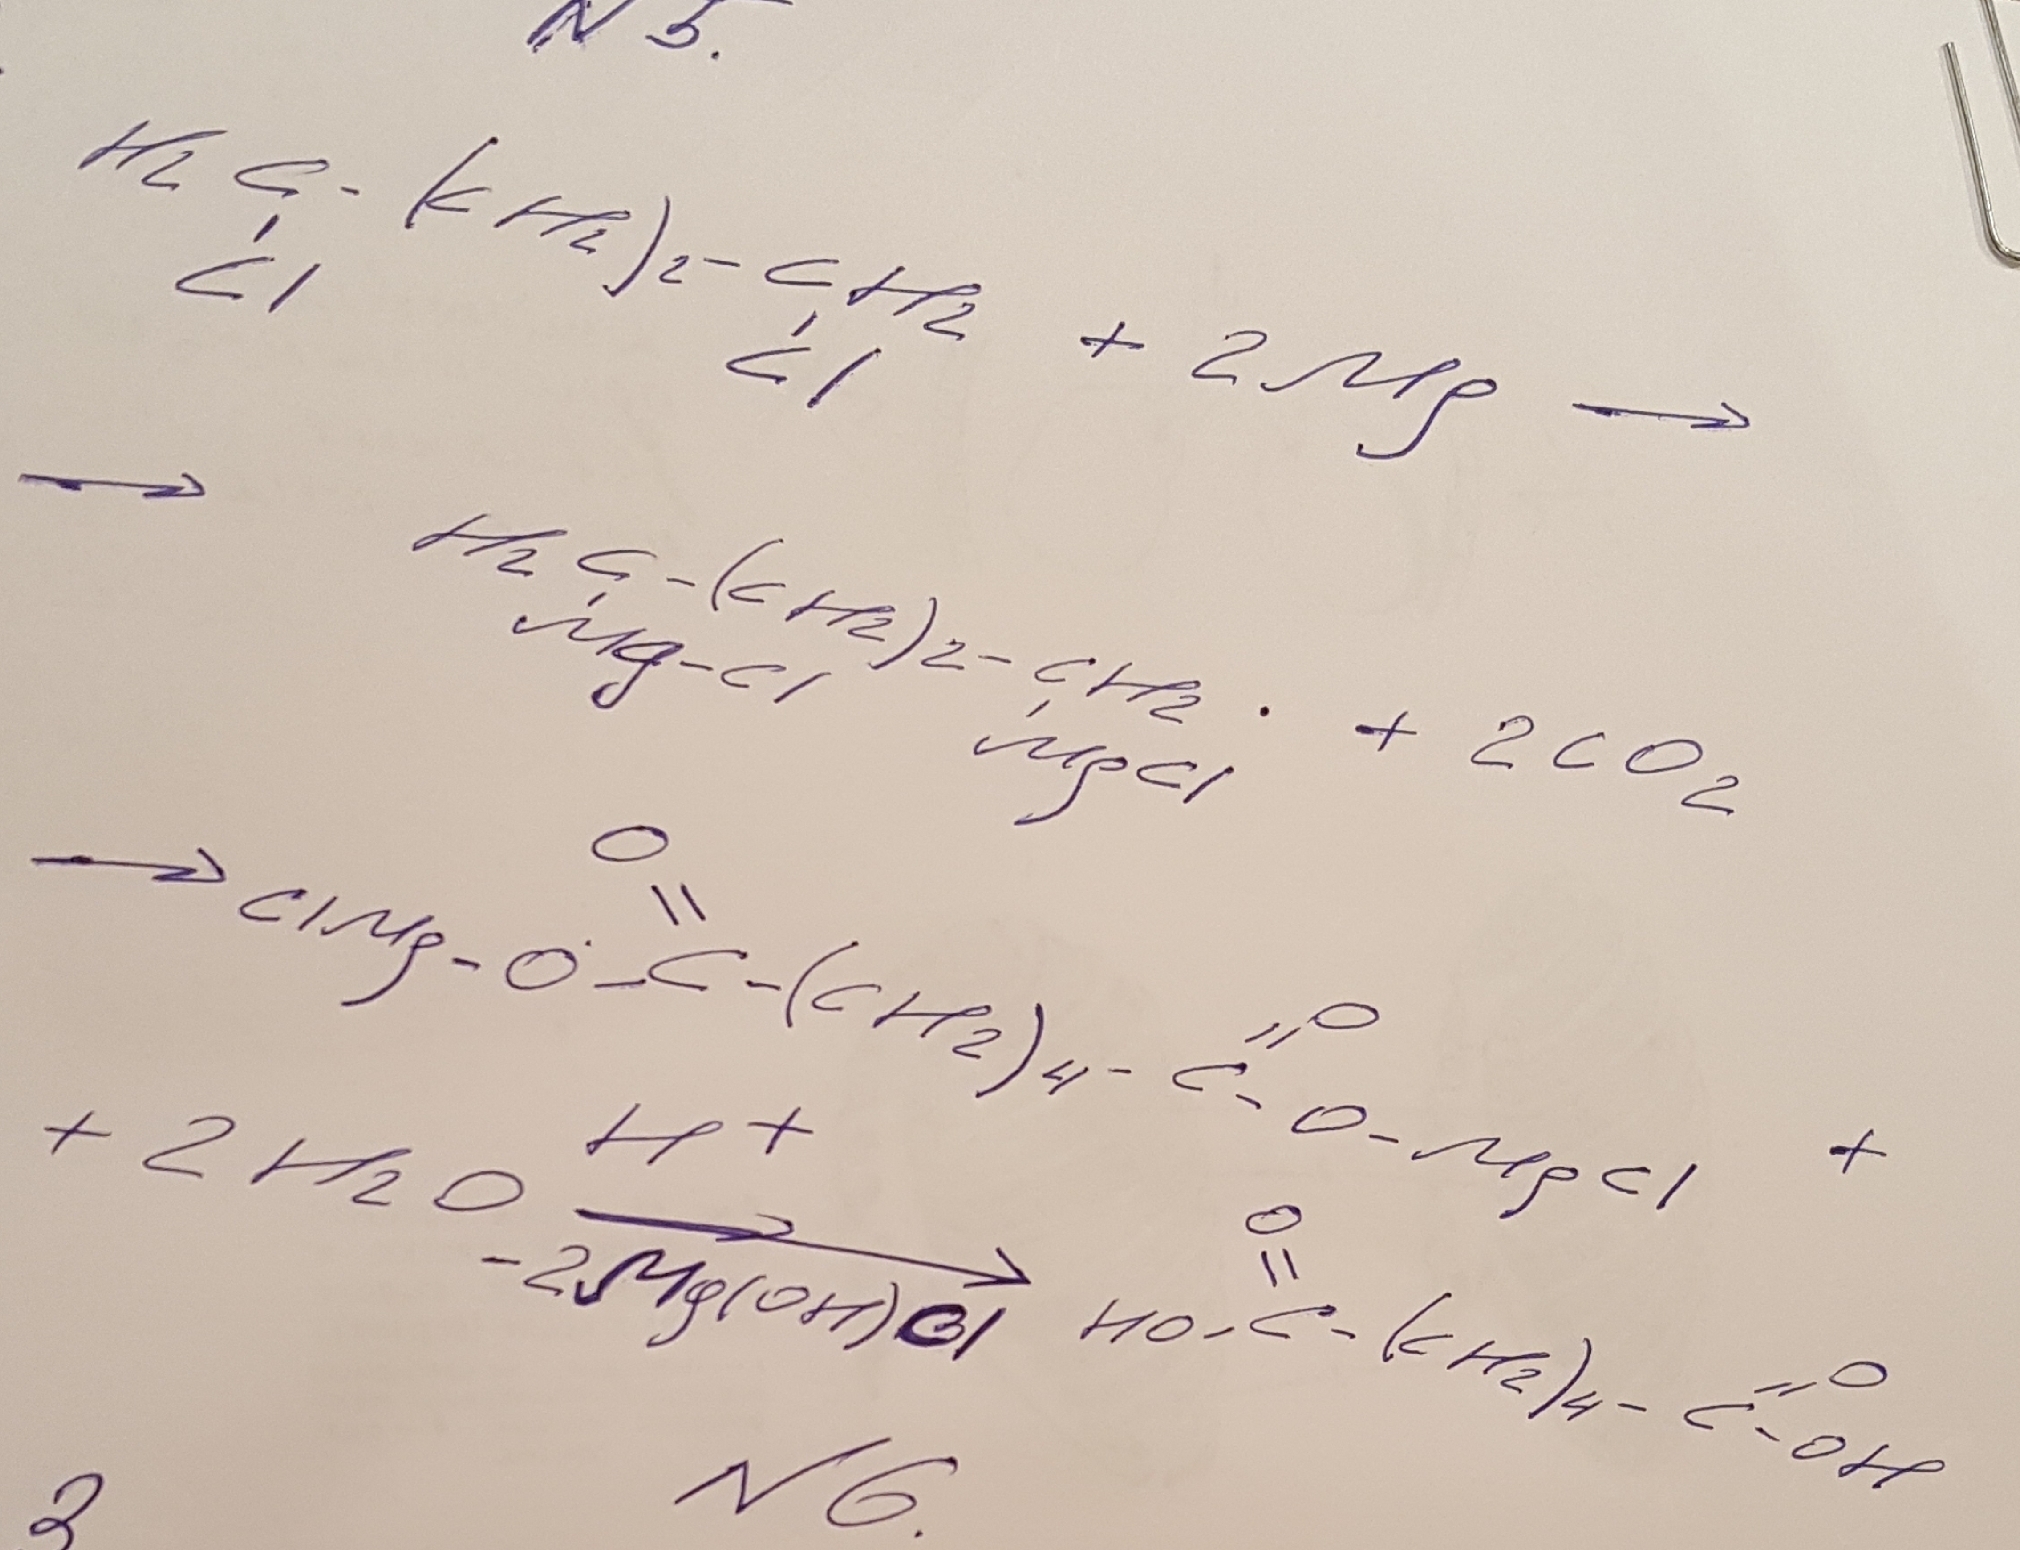 N 5.
H2C-(CH2)2-CH2 + 2Mg →
Cl Cl
→ H2C-(CH2)2-CH2 . + 2CO2
Mg-Cl MgCl
O
||
→ ClMg-O-C-(CH2)4-C=O
-O-MgCl +
+ 2H2O H+ →
-2Mg(OH)Cl
O
||
HO-C-(CH2)4-C=O
-OH
N 6.
3